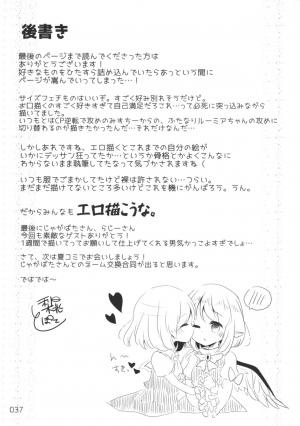 後書き
最後のページまで読んでくださった方は
ありがとうございます!
好きなものをひたすら詰め込んでいたらあっという間に
ページが嵩んでいってしまった…!
サイズフェチものはいいぞ。すごく好み別れそうだけど。
お口描くのすごく好きすぎて自己満足だろこれ…って必死に突っ込みながら
描いてました。
いつもとはCP逆転で攻めのみすちーからの、ふたなりルーミアちゃんの攻めに
切り替わるのが描きたかったんだ…それだけなんだ…
しかしあれですね、エロ描くとこれまでの自分の絵が
いかにデッサン狂ってたか…というか骨格とかよくこんなに
わからないまま執筆してたなって気づかされますね!
いつも服でごまかしてたけど裸は許されない…つらい。
まだまだ描けてないところ多いけどこれを機にがんばろう。うん。
だからみんなも エロ描こうな。
最後にじゃがばたさん、らじーさん
今回も素敵なゲストありがとう!
1週間で描いてってお願いして仕上げてくれる男気かっこよすぎでしょ…
さて、次は夏コミでお会いしましょう!
じゃがばたさんとのネーム交換合同が出ると思います。
ではでは〜
ん〜
すき
037